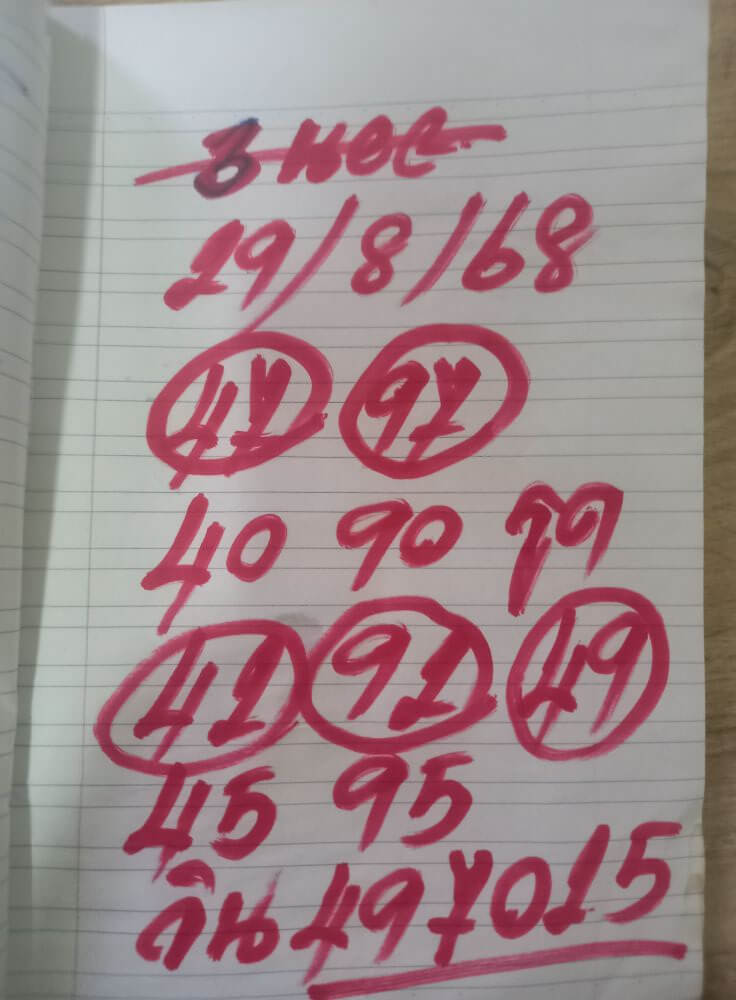 นอย
29/8/68
47 97
40 90
41 91 49
45 95
วิน 497015